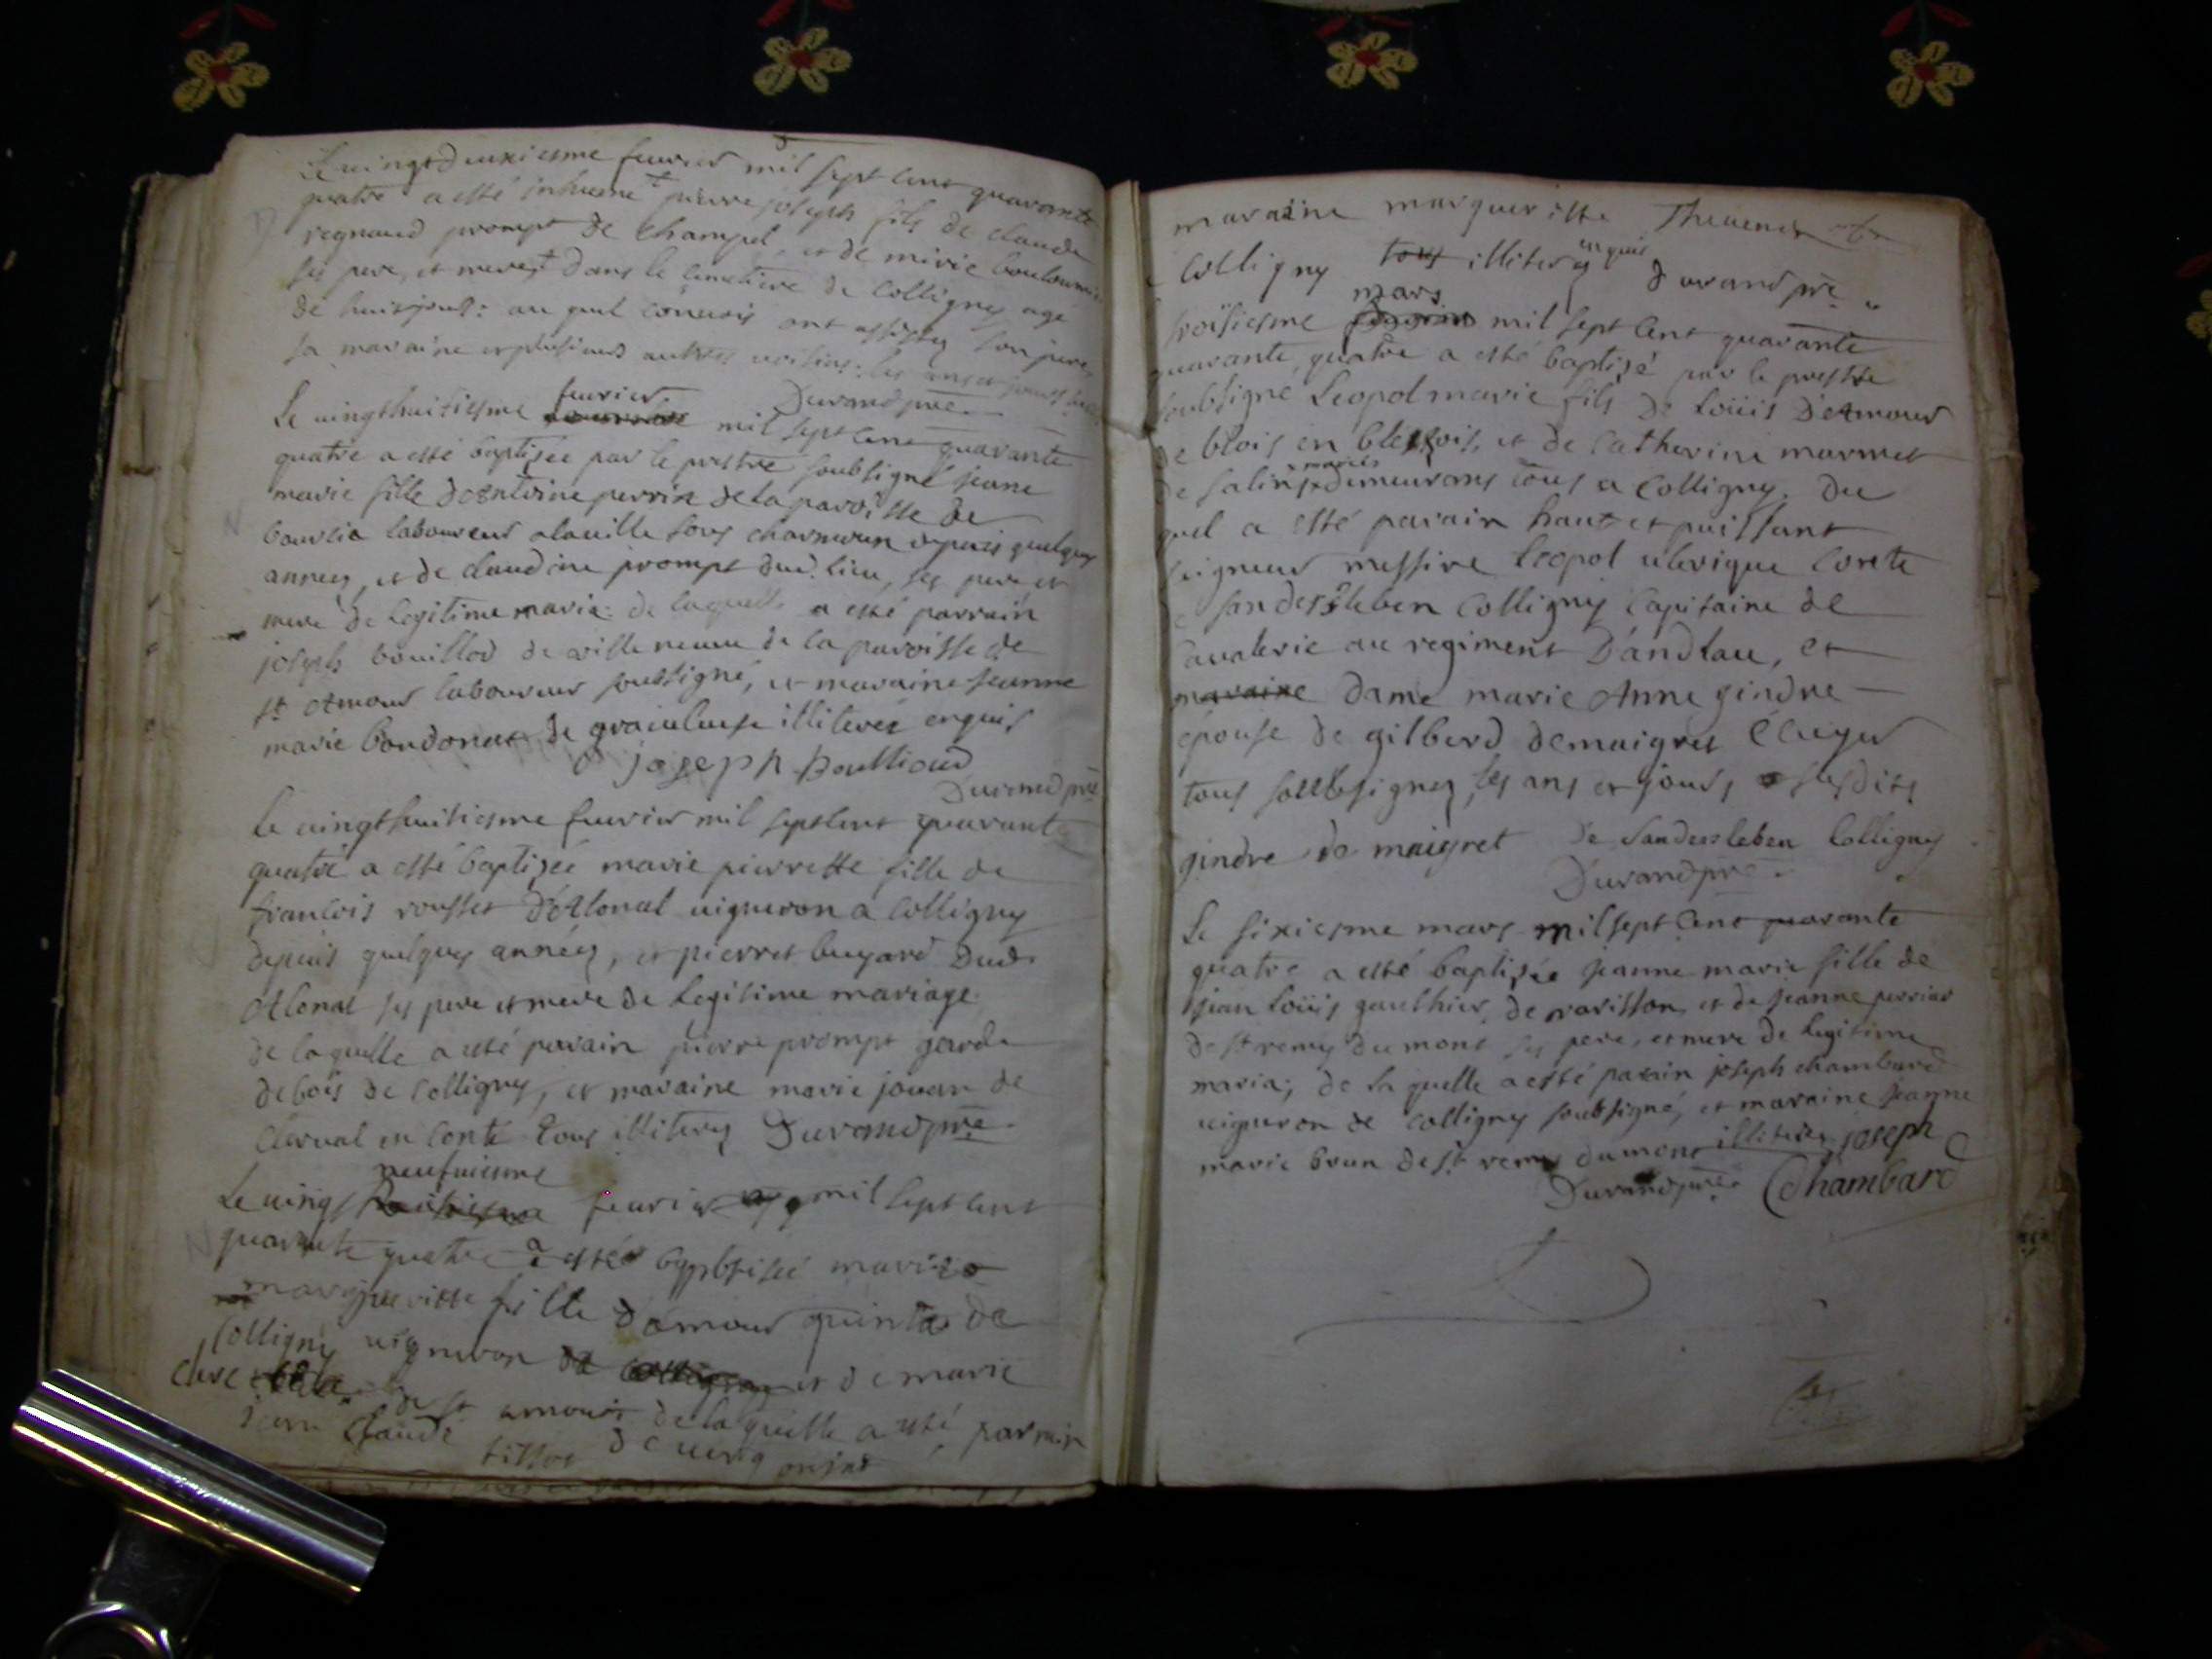 Le vingtdeuxiesme feuvrier mil sept cent quarante
quatre a esté inhumé pierre joseph fils de claude
regnaud prompt de Champel, et de mivie
ses pere, et mere dans le cimetiere de Colligny age
de huit jours: au quel convois ont assisty son pere,
sa maraine et plusieurs autres voisins: les ans et jours
Durand pre
Le vingthuitiesme feuvrier mil sept cent quarante
quatre a esté baptisée par le prestre soubsigné jeane
marie fille d'entoine perrin de la paroisse de
laboureur a lauille sous depuis quelques
années, et de claudine prompt dud. lieu, ses pere et
mere de legitime maria: de laquelle a esté parrain
joseph bouillod de villeneuve de la paroisse de
st Amour laboureur soussigné, et maraine jeanne
marie boudonet de illiterés enquis
joseph boullioud
Durand pre
Le vingthuitiesme feuvrier mil sept cent quarante
quatre a esté baptisée marie pierrette fille de
francois rousset D'Alonal vigneron a Colligny
depuis quelques années, et pierret buyard Dud.
Alonal ses pere et mere de legitime mariage.
de laquelle a esté parain pierre prompt garde
de bois de Colligny, et maraine marie jouan de
Clerval en conté tous illiterez Durand pre
Le vingt neufuiesme feuvrier mil sept cent
quarante quatre a esté marie
margueritte fille d'amour quinta de
Colligny vigneron et de marie
de st amour de laquelle a esté parrain
jean Claude tillot de
maraine marguerite Theuenet
Colligny tous illiterez enquis Durand pre
troisiesme mars mil sept cent quarante
quarante, quatre a esté baptisé par le prestre
soubsigné Leopol marie fils de Loüis D'Amour
de blois en blessois, et de Catherine marmet
de salins mariés demeurans tous a Colligny. Du
quel a esté parain haut et puissant
seigneur messire Leopol ulerique Conte
sandersleben Colligny Capitaine de
Cavalerie au regiment D'andlau, et
maraine dame marie Anne gindre
épouse de gilberd demaigret Ecuyer
tous soubsignez, les ans et jours susdits
gindre de maigret de Sandersleben Colligny
Durand pre
Le sixiesme mars mil sept cent quarante
quatre a esté baptisée jeanne marie fille de
jean Loüis gaulthier, de et de jeanne
de st remy du mont ses pere, et mere de legitime
maria; de la quelle a esté parain joseph chambard
vigneron de colligny soubsigné, et maraine jeanne
marie brun de st remy dumont illiterée joseph
Durand pre Chambard